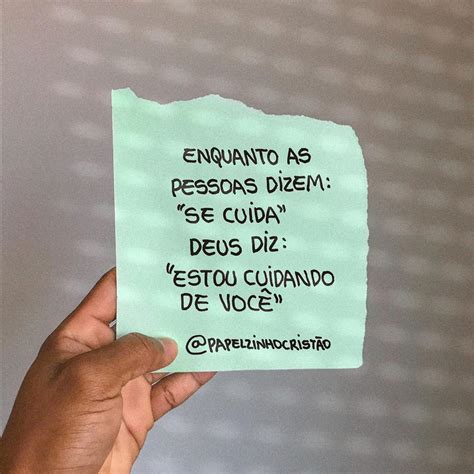 ENQUANTO AS
PESSOAS DIZEM:
"SE CUIDA"
DEUS DIZ:
"ESTOU CUIDANDO
DE VOCÊ"
@PAPELZINHOCRISTÃO